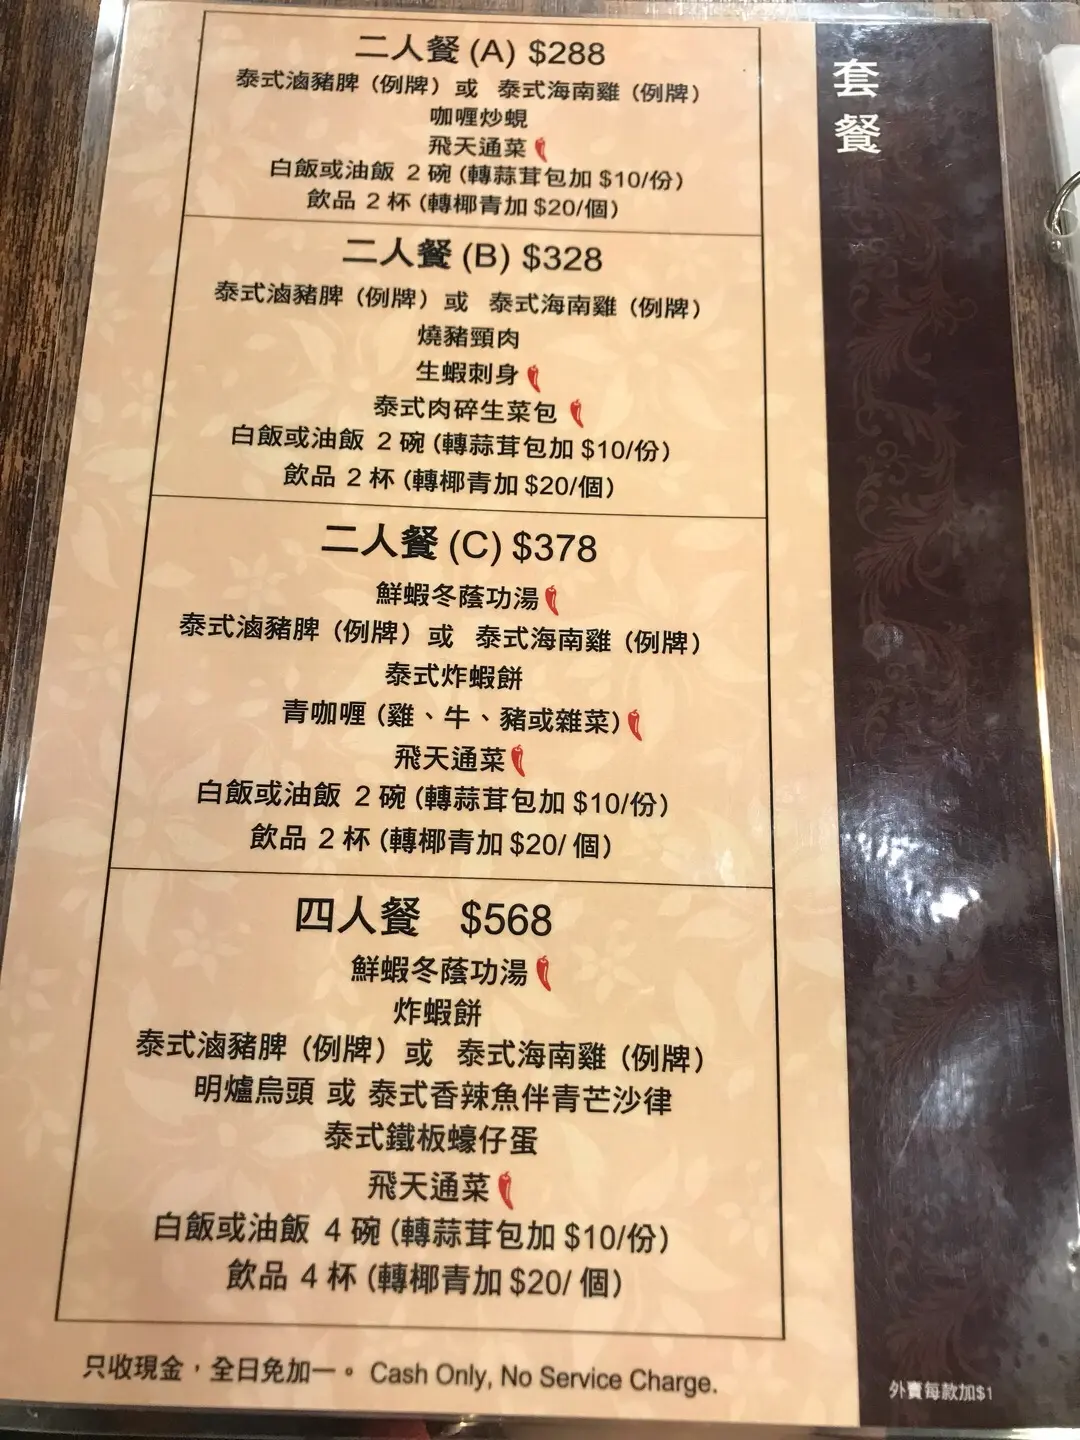 套餐
二人餐 (A) $288
泰式滷豬脾（例牌）或 泰式海南雞（例牌）
咖喱炒蜆
飛天通菜
白飯或油飯 2 碗 (轉蒜茸包加 $10/份)
飲品 2 杯 (轉椰青加 $20/個)
二人餐 (B) $328
泰式滷豬脾（例牌）或 泰式海南雞（例牌）
燒豬頸肉
生蝦刺身
泰式肉碎生菜包
白飯或油飯 2 碗 (轉蒜茸包加 $10/份)
飲品 2 杯 (轉椰青加 $20/個)
二人餐 (C) $378
鮮蝦冬蔭功湯
泰式滷豬脾（例牌）或 泰式海南雞（例牌）
泰式炸蝦餅
青咖喱 (雞、牛、豬或雜菜)
飛天通菜
白飯或油飯 2 碗 (轉蒜茸包加 $10/份)
飲品 2 杯 (轉椰青加 $20/ 個)
四人餐 $568
鮮蝦冬蔭功湯
炸蝦餅
泰式滷豬脾（例牌）或 泰式海南雞（例牌）
明爐烏頭 或 泰式香辣魚伴青芒沙律
泰式鐵板蠔仔蛋
飛天通菜
白飯或油飯 4 碗 (轉蒜茸包加 $10/份)
飲品 4 杯 (轉椰青加 $20/ 個)
只收現金，全日免加一。 Cash Only, No Service Charge.
外賣每款加$1